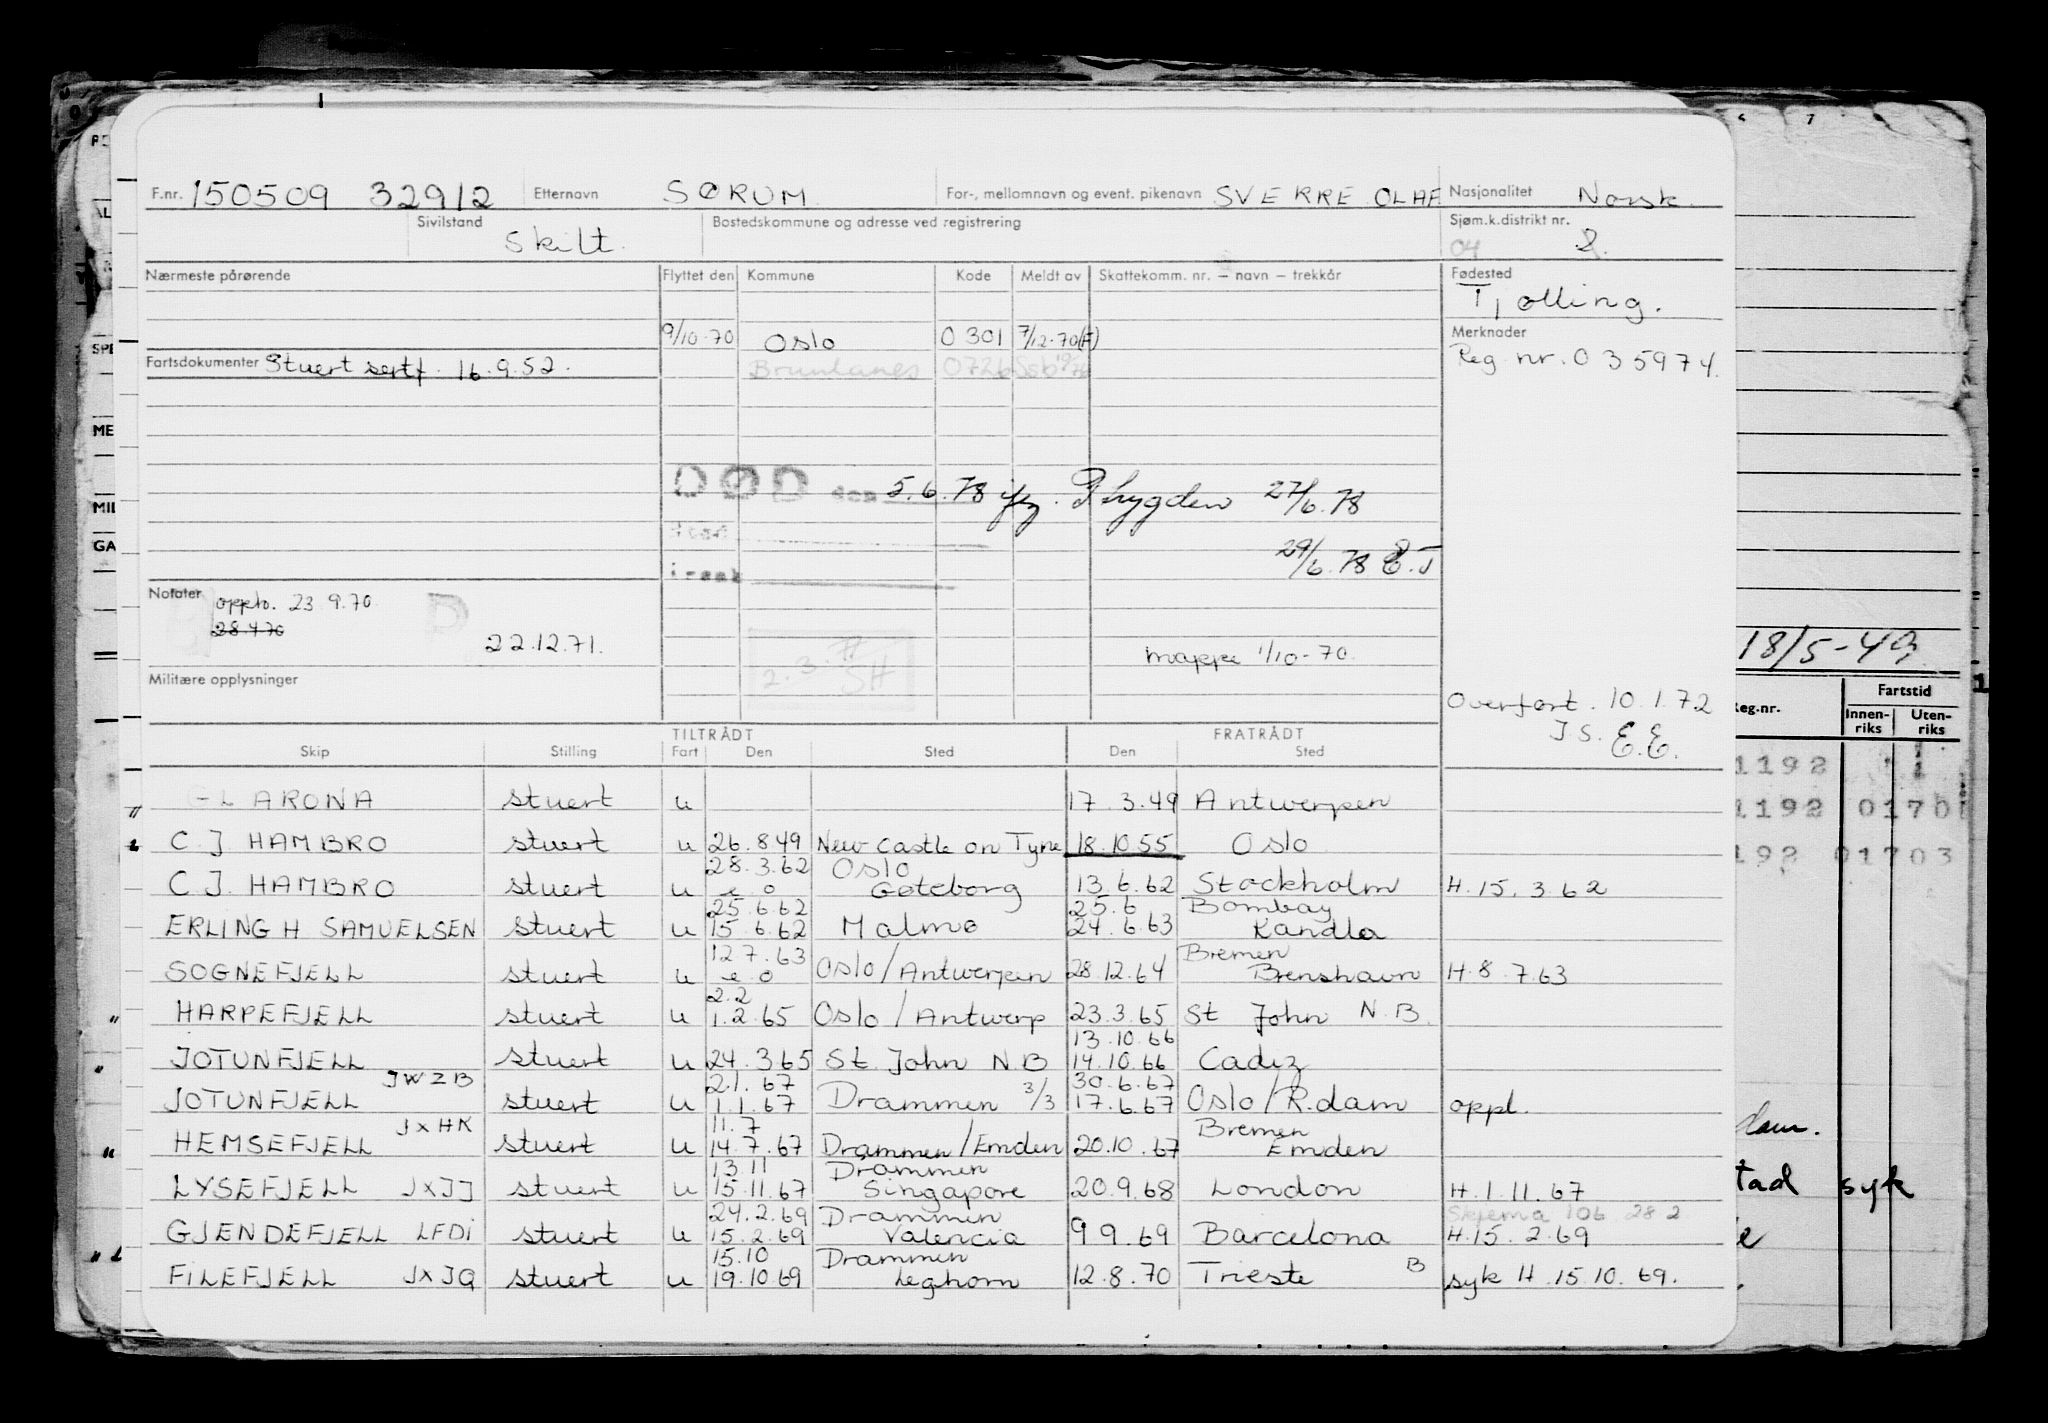 F.nr. 150509 32912 Etternavn SØRUM For-, mellomnavn og event. pikenavn SVERRE OLAF Nasjonalitet Norsk.
Sivilstand Skilt. Bostedskommune og adresse ved registrering Sjøm.k.distrikt nr. 04 2.
Nærmeste pårørende Flyttet den Kommune Kode Meldt av Skattekomm. nr. – navn – trekkår Fødested
Tjølling.
9/10-70 Oslo 0301 7/12-70(F) Merknader
Fartsdokumenter Stuert sertf. 16.9.52. Brunlanes 0726 Reg nr. 035974.
DØD den 5.6.78 Trygden 27/6.78
Sted
29/6.78 E.J
Årsak
Notater opph. 23.9.70 D
28.4.70
22.12.71.
2.3.77
SH
mappe 1/10-70.
18/5-49
Militære opplysninger
Overført. 10.1.72
J.S. E.E.
TILTRÅDT FRATRÅDT
Skip Stilling Fart Den Sted Den Sted
Reg.nr. Fartstid
Innen-riks Uten-riks
GLARONA stuert u 17.3.49 Antwerpen
C.J. HAMBRO stuert u 26.8.49 New-Castle on Tyne 18.10.55 Oslo
28.3.62 Oslo
C.J. HAMBRO stuert u e.o Gøteborg 13.6.62 Stockholm H.15.3.62
25.6.62 25.6 Bombay
ERLING H SAMUELSEN stuert u 15.6.62 Malmø 24.6.63 Kandla
12.7.63 Bremen
SOGNEFJELL stuert u e.o Oslo/Antwerpen 28.12.64 Brenshavn H.8.7.63
2.2
HARPEFJELL stuert u 1.2.65 Oslo/Antwerp 23.3.65 St John N.B.
13.10.66
JOTUNFJELL stuert u 24.3.65 St. John N B 14.10.66 Cadiz
JWZB 2.1.67 30.6.67
JOTUNFJELL stuert u 1.1.67 Drammen 3/3 17.6.67 Oslo/R.dam oppl.
JXHK 11.7 Bremen
HEMSEFJELL stuert u 14.7.67 Drammen/Emden 20.10.67 Emden
13.11 Drammen
LYSEFJELL JXJJ stuert u 15.11.67 Singapore 20.9.68 London H.1.11.67
24.2.69 Drammen Skjema 106 28.2
GJENDEFJELL LFDI stuert u 15.2.69 Valencia 9.9.69 Barcelona H.15.2.69
15.10 Drammen
FILEFJELL JXJQ stuert u 19.10.69 Leghorn 12.8.70 Trieste B syk H.15.10.69.
1192
1192 0170
192 01703
dam.
tad syk